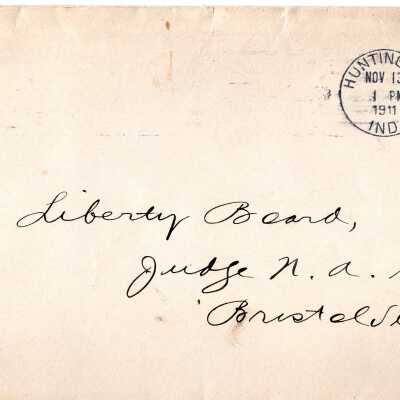 HUNTING
NOV 13
1 PM
1911
IND
Liberty Beard,
Judge N. A.
Bristolvi